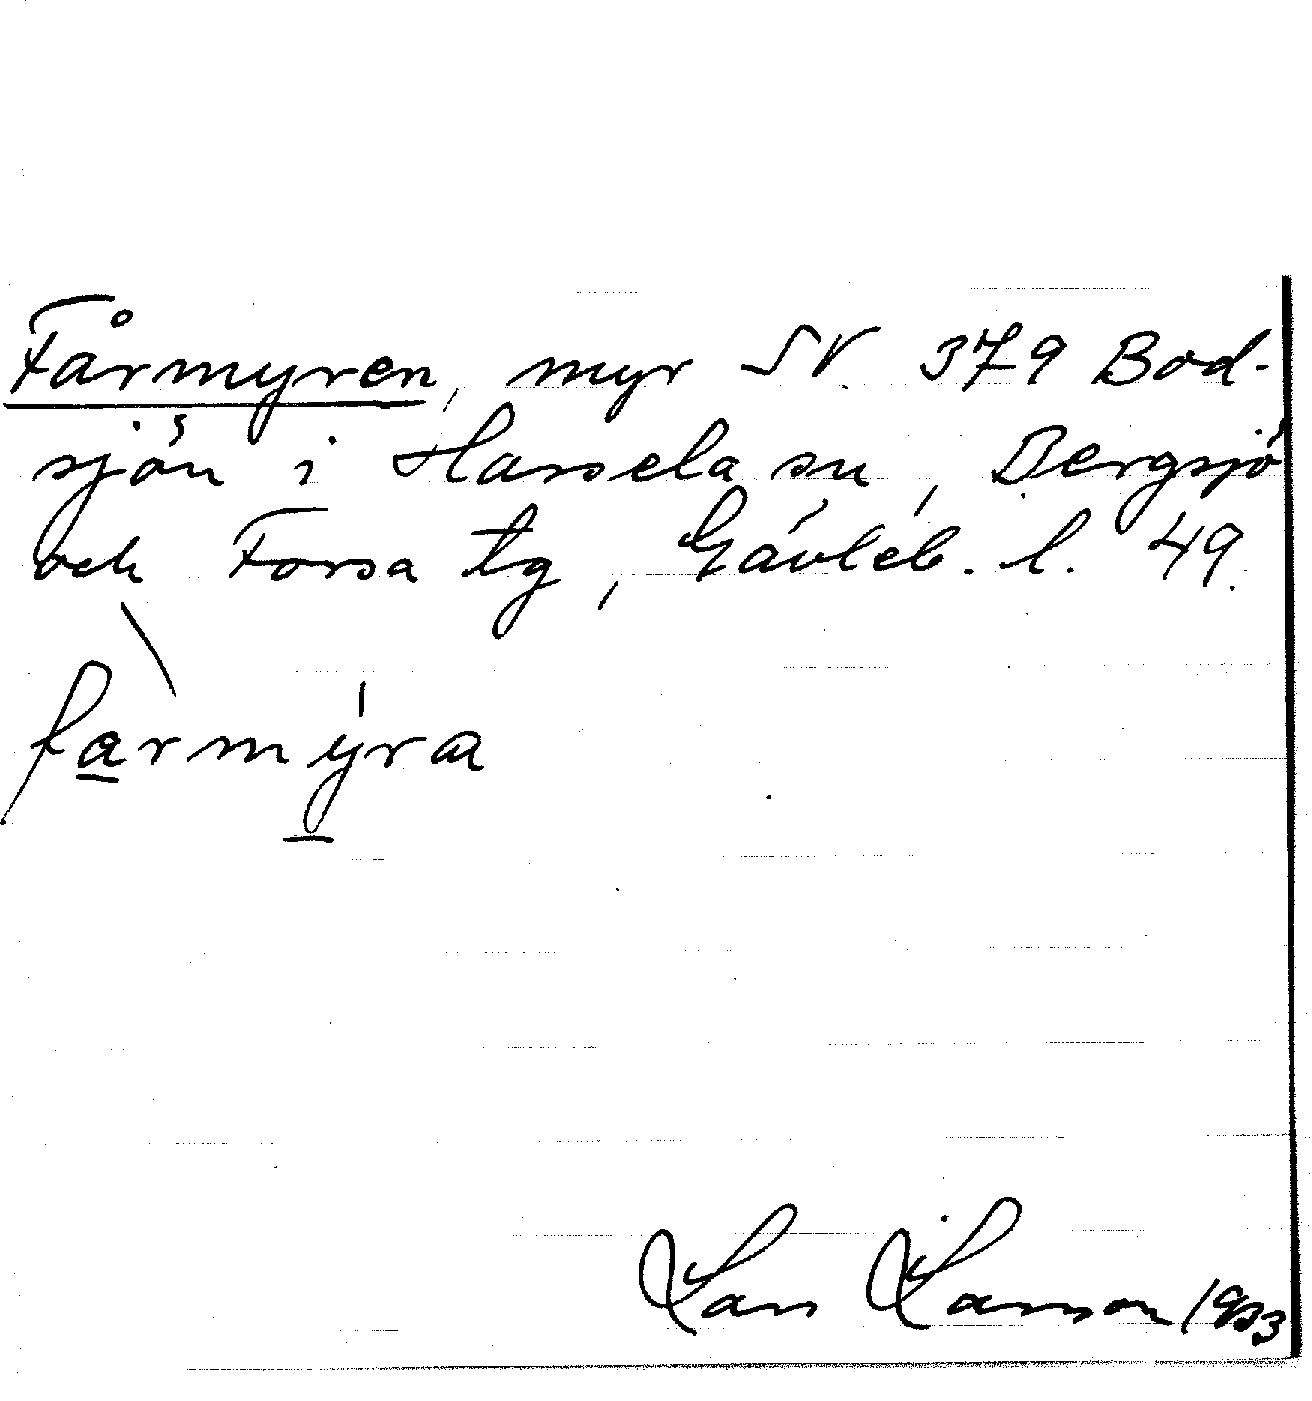 Fårmyren, myr SV 379 Bod-
sjön i Hassela sn, Bergsjö
och Forsa tg, Gävleb. l. 49.
fa̲rmýra
Lars Larsson